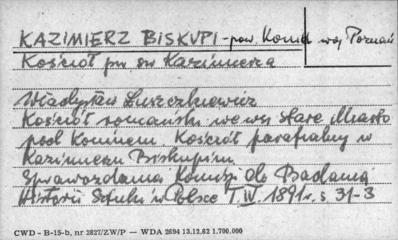 KAZIMIERZ BISKUPI - pow. Konin woj Poznań
Kościół pw św Kazimierza
Władysław Łuszczkiewicz
Kościół romański we wsi Stare Miasto
pod Koninem. Kościół parafialny w
Kazimierzu Biskupim.
Sprawozdania Komisji do Badania
Historii Sztuki w Polsce T. IV. 1891 r. s 31-3
CWD - B-15-b, nr 2827/ZW/P — WDA 2694 13.12.62 1.700.000